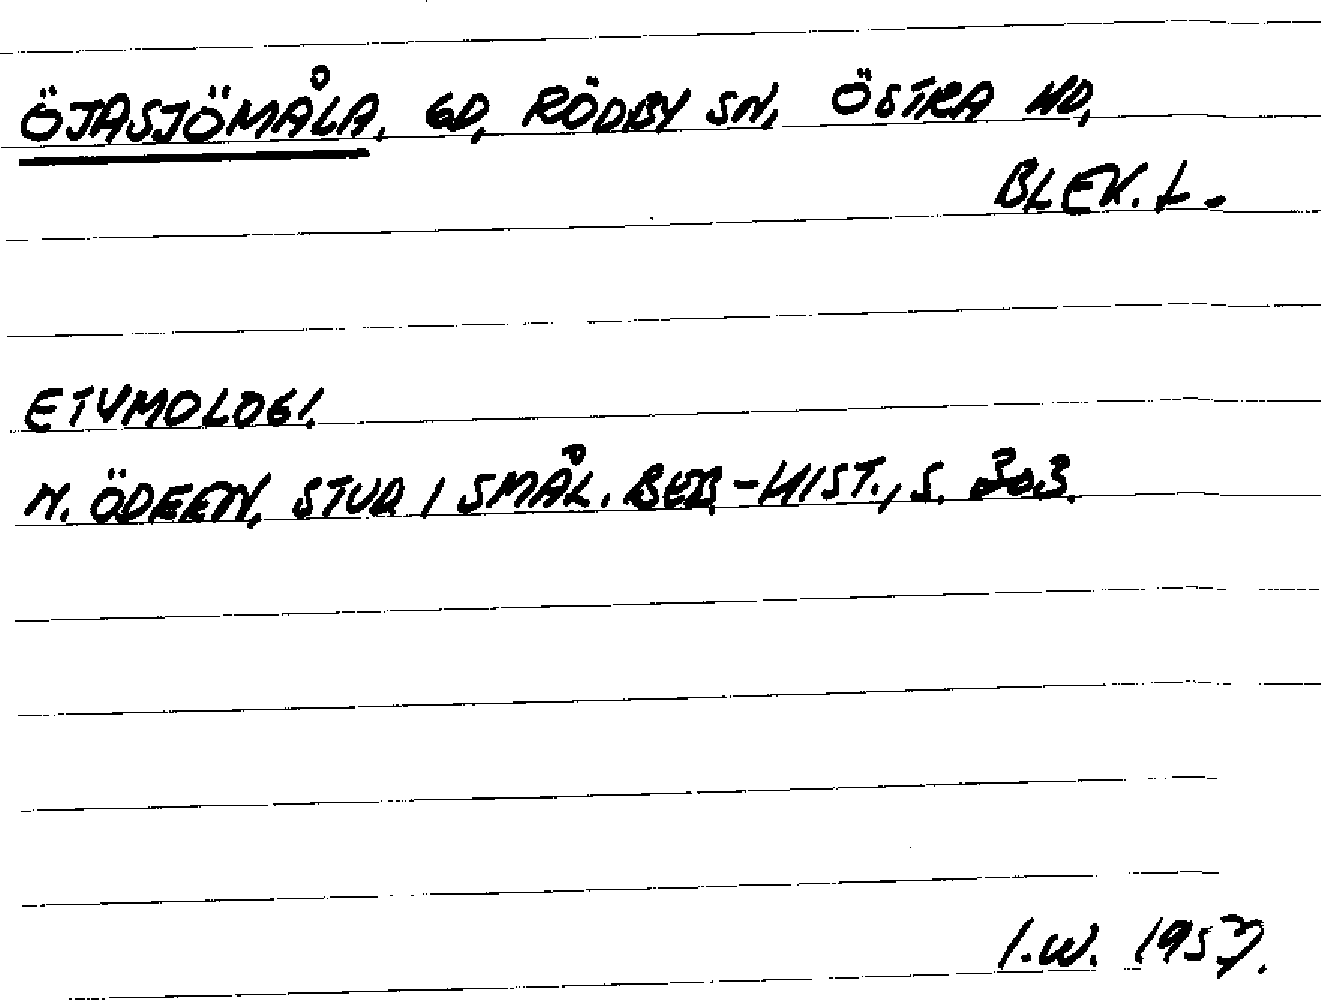 ÖJASJÖMÅLA, GD, RÖDBY SN, ÖSTRA HD,
BLEK. L.
ETYMOLOGI.
N. ÖDEEN, STUD I SMÅL. BEB-HIST., S. 303.
I.W. 1957.